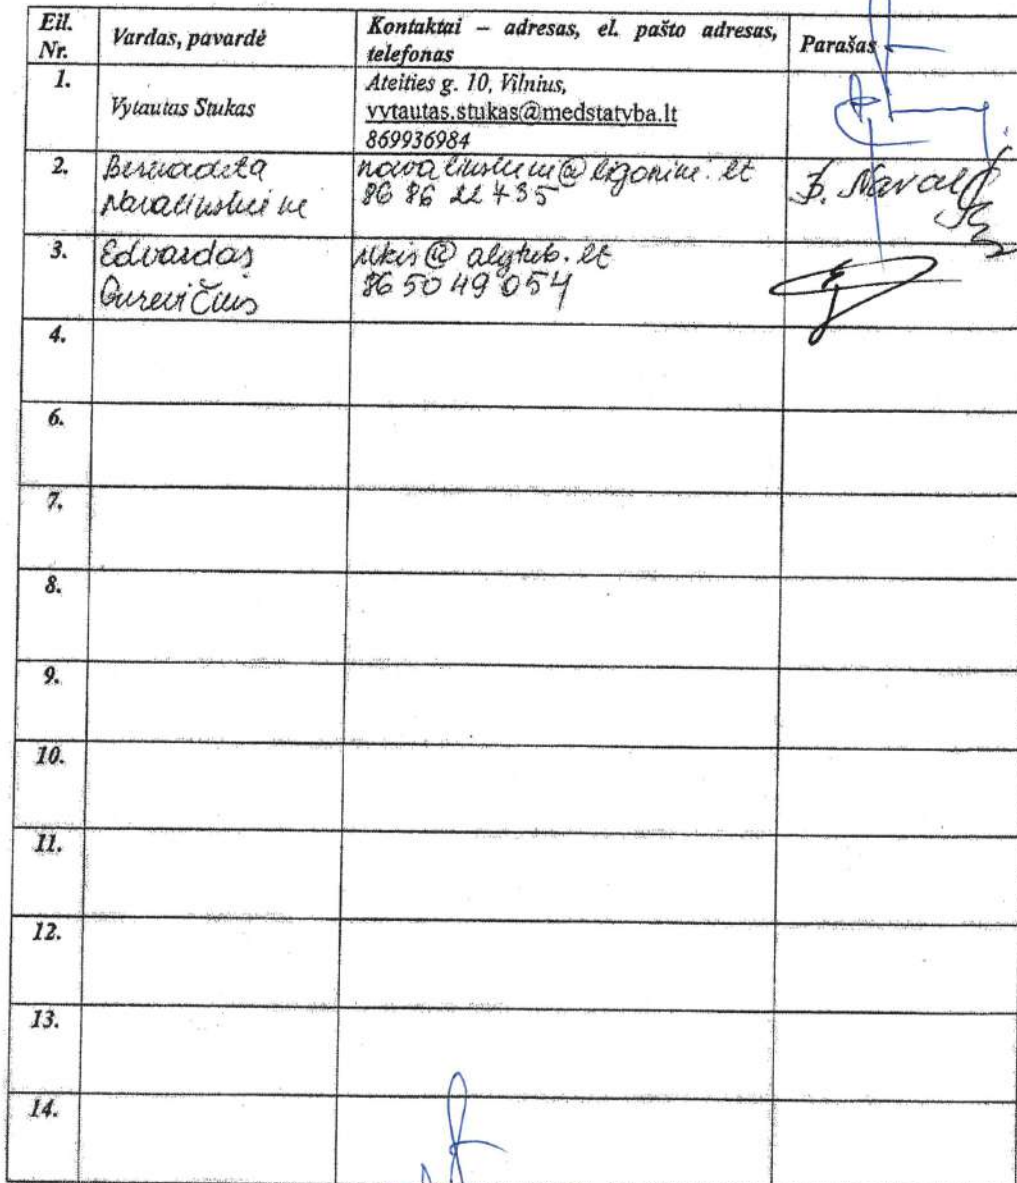 Eil. Nr. Vardas, pavardė Kontaktai – adresas, el. pašto adresas, telefonas Parašas
1. Vytautas Stukas Ateities g. 10, Vilnius,
vytautas.stukas@medstatyba.lt
869936984
2. Bernadeta 86 86 22 435
B. Naval
3. Edvardas
Gurevičius 86 50 49 054
4.
6.
7.
8.
9.
10.
11.
12.
13.
14.